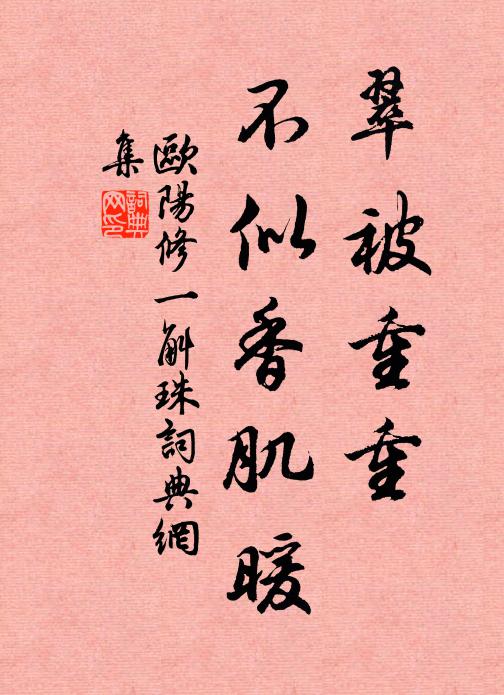 翠被重重
不似香肌暖
歐陽修一斛珠詞典網
集
詞典
网印